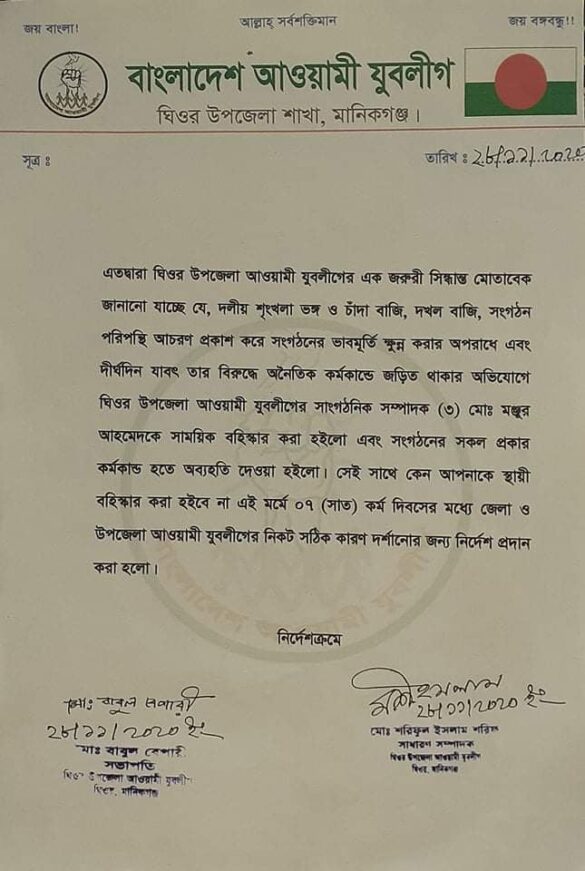 জয় বাংলা!
আল্লাহ্ সর্বশক্তিমান
জয় বঙ্গবন্ধু!!
বাংলাদেশ আওয়ামী যুবলীগ
ঘিওর উপজেলা শাখা, মানিকগঞ্জ।
সূত্র ঃ
তারিখ ঃ ২৮/১১/২০২০
এতদ্বারা ঘিওর উপজেলা আওয়ামী যুবলীগের এক জরুরী সিদ্ধান্ত মোতাবেক
জানানো যাচ্ছে যে, দলীয় শৃংখলা ভঙ্গ ও চাঁদা বাজি, দখল বাজি, সংগঠন
পরিপন্থি আচরণ প্রকাশ করে সংগঠনের ভাবমূর্তি ক্ষুন্ন করার অপরাধে এবং
দীর্ঘদিন যাবৎ তার বিরুদ্ধে অনৈতিক কর্মকান্ডে জড়িত থাকার অভিযোগে
ঘিওর উপজেলা আওয়ামী যুবলীগের সাংগঠনিক সম্পাদক (৩) মোঃ মঞ্জুর
আহমেদকে সাময়িক বহিস্কার করা হইলো এবং সংগঠনের সকল প্রকার
কর্মকান্ড হতে অব্যহতি দেওয়া হইলো। সেই সাথে কেন আপনাকে স্থায়ী
বহিস্কার করা হইবে না এই মর্মে ০৭ (সাত) কর্ম দিবসের মধ্যে জেলা ও
উপজেলা আওয়ামী যুবলীগের নিকট সঠিক কারণ দর্শানোর জন্য নির্দেশ প্রদান
করা হলো।
নির্দেশক্রমে
মোঃ বাবুল বেপারী
২৮/১১/২০২০ ইং
মোঃ বাবুল বেপারী
সভাপতি
ঘিওর উপজেলা আওয়ামী যুবলীগ
ঘিওর, মানিকগঞ্জ
২৮/১১/২০২০ ইং
মোঃ শরিফুল ইসলাম শরিফ
সাধারণ সম্পাদক
ঘিওর উপজেলা আওয়ামী যুবলীগ
ঘিওর, মানিকগঞ্জ